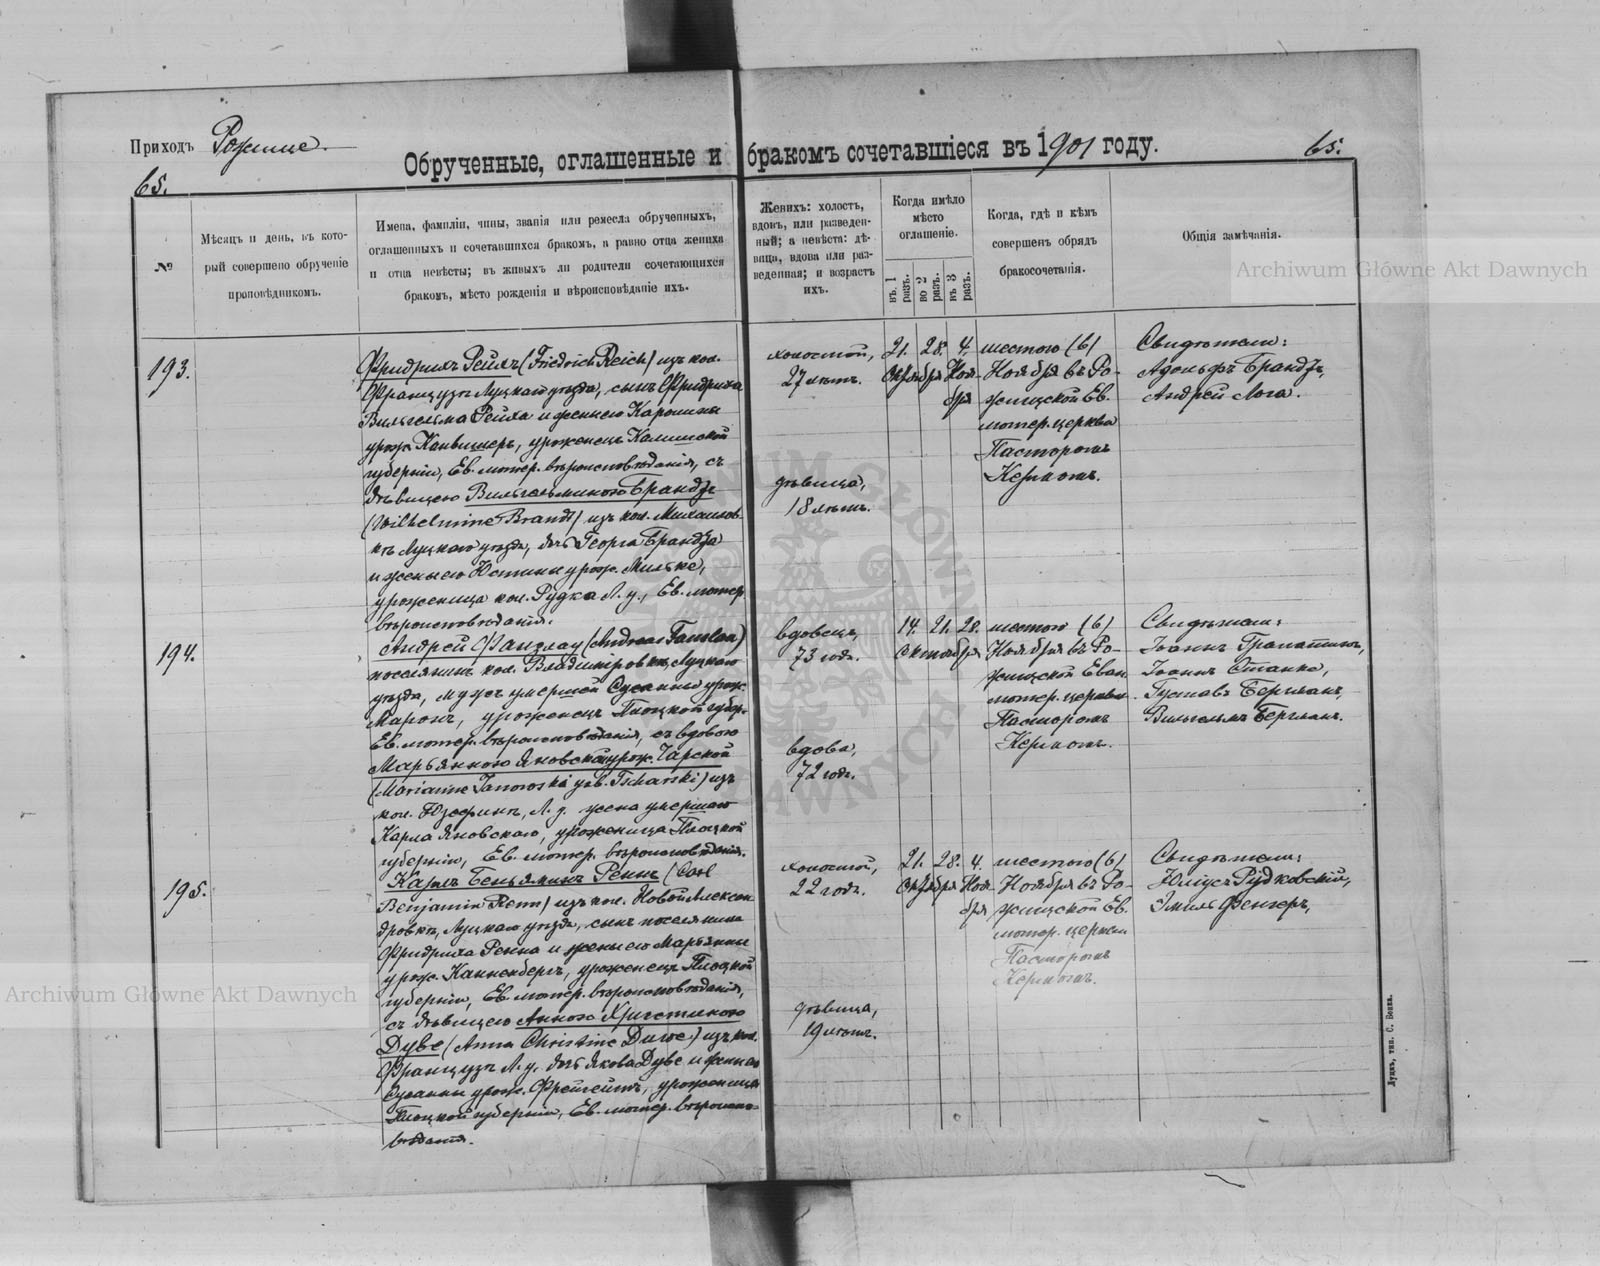 Приходъ Рожище.
Обрученные, оглашенные и бракомъ сочетавшіеся въ 1901 году.
65.
65.
№
Мѣсяцъ и день, въ кото-
рый совершено обрученіе
проповѣдникомъ.
Имена, фамиліи, чины, званія или ремесла обрученныхъ,
оглашенныхъ и сочетавшихся бракомъ, а равно отца жениха
и отца невѣсты; въ живыхъ ли родители сочетающихся
бракомъ, мѣсто рожденія и вѣроисповѣданіе ихъ.
Женихъ: холостъ,
вдовъ, или разведен-
ный; а невѣста: дѣ-
вица, вдова или раз-
веденная; и возрастъ
ихъ.
Когда имѣло
мѣсто
оглашеніе.
въ 1 разъ.
во 2 разъ.
въ 3 разъ.
Когда, гдѣ и кѣмъ
совершенъ обрядъ
бракосочетанія.
Общія замѣчанія.
Archiwum Główne Akt Dawnych
193.
Фридрихъ Рейхъ (Friedrich Reich) изъ кол.
Французъ Луцкаго уѣзда, сынъ Фридриха
Вильгельма Рейха и жены его Каролины
урож. , уроженецъ Калишской
губерніи, Ев. лютер. вѣроисповѣданія, съ
дѣвицею Вильгельминою Брандтъ
(Wilhelmine Brandt) изъ кол. Михаилов-
къ Луцкаго уѣзда, дочь Георга Брандта
и жены его Юстины урож. Мильке,
уроженица кол. Рудка Л. у., Ев. лютер.
вѣроисповѣданія.
холостой,
27 лѣтъ.
дѣвица,
18 лѣтъ.
21. 28. 4.
Октября Ноя-
бря
шестого (6)
Ноября въ Ро-
жищской Ев.
лютер. церкви
Пасторомъ
Кермомъ.
Свидѣтели:
Адольфъ Брандтъ,
Андрей Лога.
194.
Андрей Фанзлау (Andreas Fanslau)
поселянинъ кол. Владимировка, Луцкаго
уѣзда, мужъ умершей Сусанны урож.
Маронъ, уроженецъ Плоцкой губер.
Ев. лютер. вѣроисповѣданія, съ вдовою
Марьянною Яновской урож. Чарской
(Marianne Janowski geb. Tscharski) изъ
кол. Юзефинъ, Л. у. жена умершаго
Карла Яновскаго, уроженица Плоцкой
губерніи, Ев. лютер. вѣроисповѣданія.
вдовецъ,
73 года.
вдова,
72 года.
14. 21. 28.
Октября
шестого (6)
Ноября въ Ро-
жищской Еван.
лютер. церкви
Пасторомъ
Кермомъ.
Свидѣтели:
Іоаннъ
Іоаннъ Станке,
Густавъ Бергманъ,
Вильгельмъ Бергманъ.
195.
Карлъ Беньяминъ Реннъ (Carl
Benjamin Renn) изъ кол. Новой Алексан-
дровкѣ, Луцкаго уѣзда, сынъ поселянина
Фридриха Ренна и жены его Марьянны
урож. Канненбергъ, уроженецъ Плоцкой
губерніи, Ев. лютер. вѣроисповѣданія,
съ дѣвицею Анною Христиною
Дуве (Anna Christine Duwe) изъ кол.
Французъ Л. у. дочь Якова Дуве и жены его
Сусанны урож. , уроженица
Плоцкой губерніи, Ев. лютер. вѣроиспо-
вѣданія.
холостой,
22 года.
дѣвица,
19 лѣтъ.
21. 28. 4.
Октября Ноя-
бря
шестого (6)
Ноября въ Ро-
жищской Ев.
лютер. церкви
Пасторомъ
Кермомъ.
Свидѣтели:
Юліусъ Рудковскій,
Эмиль Фенгеръ,
Archiwum Główne Akt Dawnych
Луцкъ, тип. С. Бенка.